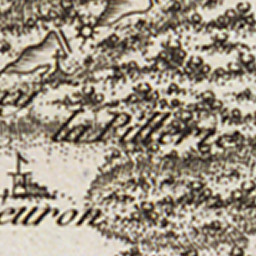 la Pillerie
euron